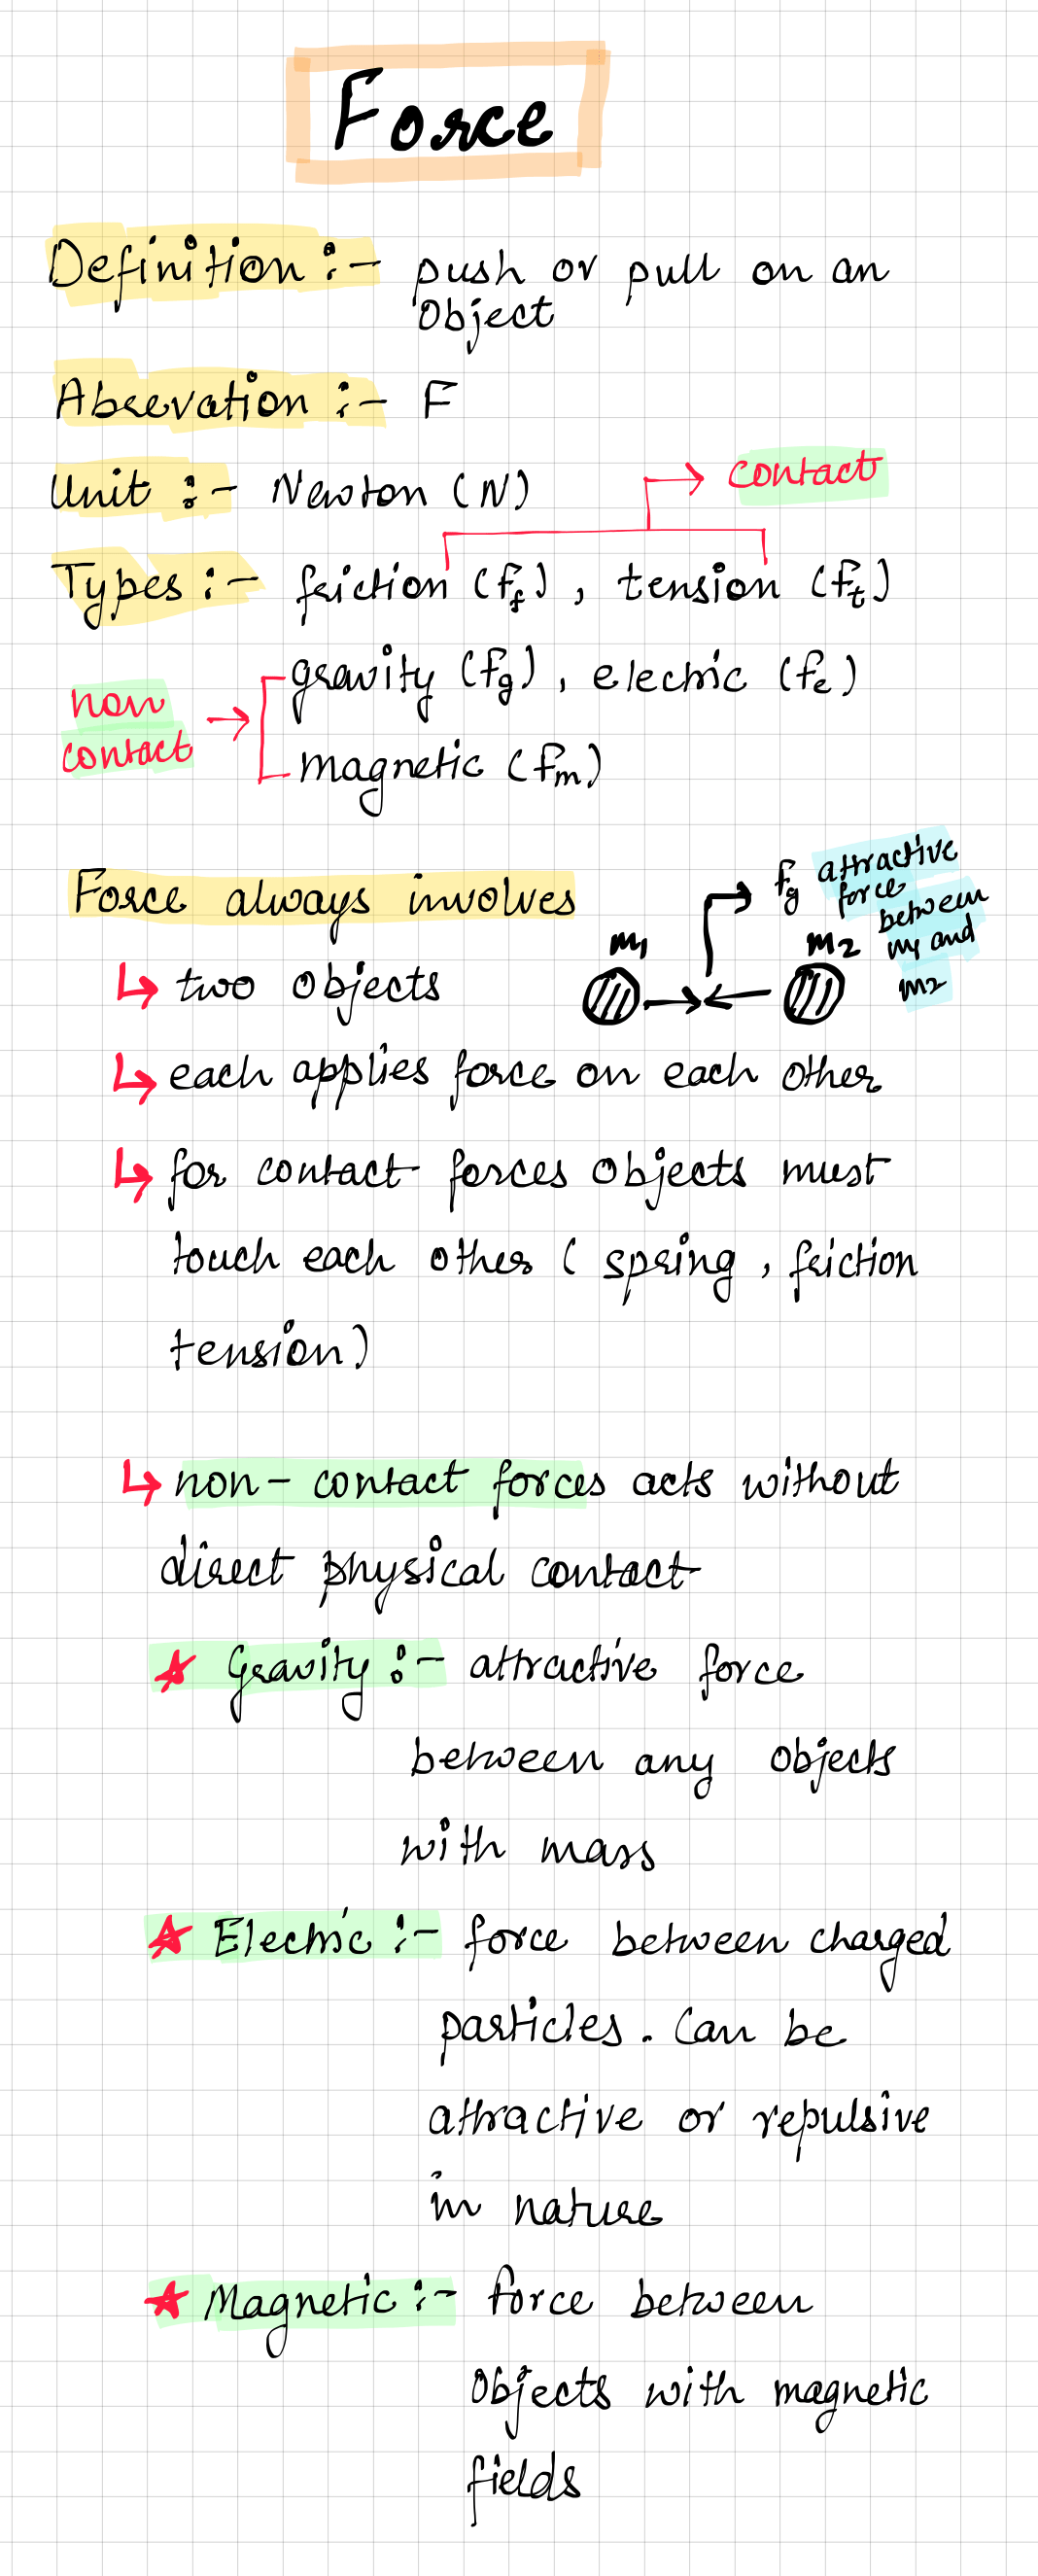 Force
Definition :- push or pull on an
Object
Abrevation :- F
Unit :- Newton (N)
contact
Types :- friction (Ff), tension (Ft)
gravity (Fg), electric (Fe)
non
contact
magnetic (Fm)
Force always involves
Fg attractive
force
between
m1 and
m2
m1
m2
two objects
each applies force on each other
for contact forces objects must
touch each other ( spring, friction
tension)
non-contact forces acts without
direct physical contact
Gravity :- attractive force
between any objects
with mass
Electric :- force between charged
particles. Can be
attractive or repulsive
in nature
Magnetic :- force between
Objects with magnetic
fields